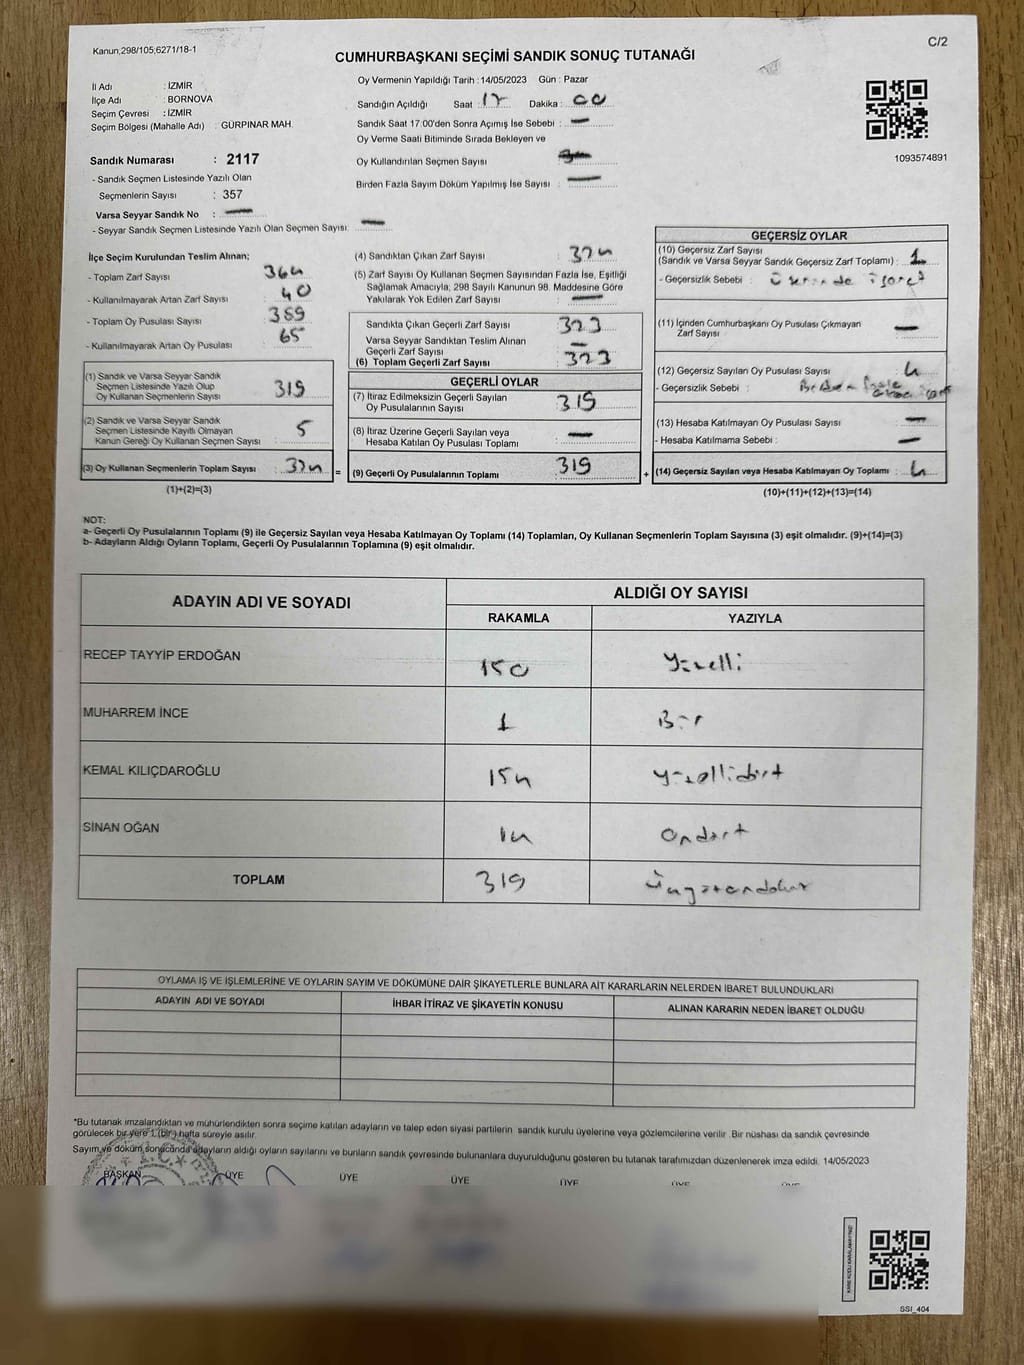 Kanun;298/105;6271/18-1
C/2
CUMHURBAŞKANI SEÇİMİ SANDIK SONUÇ TUTANAĞI
İl Adı : İZMİR
İlçe Adı : BORNOVA
Seçim Çevresi : İZMİR
Seçim Bölgesi (Mahalle Adı) : GÜRPINAR MAH.
Sandık Numarası : 2117
- Sandık Seçmen Listesinde Yazılı Olan
Seçmenlerin Sayısı : 357
Varsa Seyyar Sandık No : —
- Seyyar Sandık Seçmen Listesinde Yazılı Olan Seçmen Sayısı: —
Oy Vermenin Yapıldığı Tarih : 14/05/2023 Gün : Pazar
Sandığın Açıldığı Saat : 17 Dakika : 00
Sandık Saat 17.00'den Sonra Açımış İse Sebebi : —
Oy Verme Saati Bitiminde Sırada Bekleyen ve
Oy Kullandırılan Seçmen Sayısı
Birden Fazla Sayım Döküm Yapılmış İse Sayısı : —
1093574891
İlçe Seçim Kurulundan Teslim Alınan;
- Toplam Zarf Sayısı : 364
- Kullanılmayarak Artan Zarf Sayısı : 40
- Toplam Oy Pusulası Sayısı : 389
- Kullanılmayarak Artan Oy Pusulası : 65
(1) Sandık ve Varsa Seyyar Sandık
Seçmen Listesinde Yazılı Olup
Oy Kullanan Seçmenlerin Sayısı : 319
(2) Sandık ve Varsa Seyyar Sandık
Seçmen Listesinde Kayıtlı Olmayan
Kanun Gereği Oy Kullanan Seçmen Sayısı : 5
(3) Oy Kullanan Seçmenlerin Toplam Sayısı : 324 =
(1)+(2)=(3)
(4) Sandıktan Çıkan Zarf Sayısı : 324
(5) Zarf Sayısı Oy Kullanan Seçmen Sayısından Fazla İse, Eşitliği
Sağlamak Amacıyla, 298 Sayılı Kanunun 98. Maddesine Göre
Yakılarak Yok Edilen Zarf Sayısı : —
Sandıkta Çıkan Geçerli Zarf Sayısı : 323
Varsa Seyyar Sandıktan Teslim Alınan
Geçerli Zarf Sayısı : —
(6) Toplam Geçerli Zarf Sayısı : 323
GEÇERLİ OYLAR
(7) İtiraz Edilmeksizin Geçerli Sayılan
Oy Pusulalarının Sayısı : 319
(8) İtiraz Üzerine Geçerli Sayılan veya
Hesaba Katılan Oy Pusulası Toplamı : —
(9) Geçerli Oy Pusulalarının Toplamı : 319 +
GEÇERSİZ OYLAR
(10) Geçersiz Zarf Sayısı
(Sandık ve Varsa Seyyar Sandık Geçersiz Zarf Toplamı) : 1
- Geçersizlik Sebebi : üzerinde işaret
(11) İçinden Cumhurbaşkanı Oy Pusulası Çıkmayan
Zarf Sayısı : —
(12) Geçersiz Sayılan Oy Pusulası Sayısı : 4
- Geçersizlik Sebebi : Birden fazla
(13) Hesaba Katılmayan Oy Pusulası Sayısı : —
- Hesaba Katılmama Sebebi : —
(14) Geçersiz Sayılan veya Hesaba Katılmayan Oy Toplamı : 4
(10)+(11)+(12)+(13)=(14)
NOT:
a- Geçerli Oy Pusulalarının Toplamı (9) ile Geçersiz Sayılan veya Hesaba Katılmayan Oy Toplamı (14) Toplamları, Oy Kullanan Seçmenlerin Toplam Sayısına (3) eşit olmalıdır. (9)+(14)=(3)
b- Adayların Aldığı Oyların Toplamı, Geçerli Oy Pusulalarının Toplamına (9) eşit olmalıdır.
ADAYIN ADI VE SOYADI
ALDIĞI OY SAYISI
RAKAMLA YAZIYLA
RECEP TAYYİP ERDOĞAN 150 Yüzelli
MUHARREM İNCE 1 Bir
KEMAL KILIÇDAROĞLU 154 yüzellidört
SİNAN OĞAN 14 ondört
TOPLAM 319 üçyüzondokuz
OYLAMA İŞ VE İŞLEMLERİNE VE OYLARIN SAYIM VE DÖKÜMÜNE DAİR ŞİKAYETLERLE BUNLARA AİT KARARLARIN NELERDEN İBARET BULUNDUKLARI
ADAYIN ADI VE SOYADI İHBAR İTİRAZ VE ŞİKAYETİN KONUSU ALINAN KARARIN NEDEN İBARET OLDUĞU
*Bu tutanak imzalandıktan ve mühürlendikten sonra seçime katılan adayların ve talep eden siyasi partilerin sandık kurulu üyelerine veya gözlemcilerine verilir .Bir nüshası da sandık çevresinde
görülecek bir yere 1 (bir ) hafta süreyle asılır.
Sayım ve döküm sonucanda adayların aldığı oyların sayılarını ve bunların sandık çevresinde bulunanlara duyurulduğunu gösteren bu tutanak tarafımızdan düzenlenerek imza edildi. 14/05/2023
BAŞKAN ÜYE ÜYE ÜYE ÜYE ÜYE ÜYE
T.C.
SSI_404